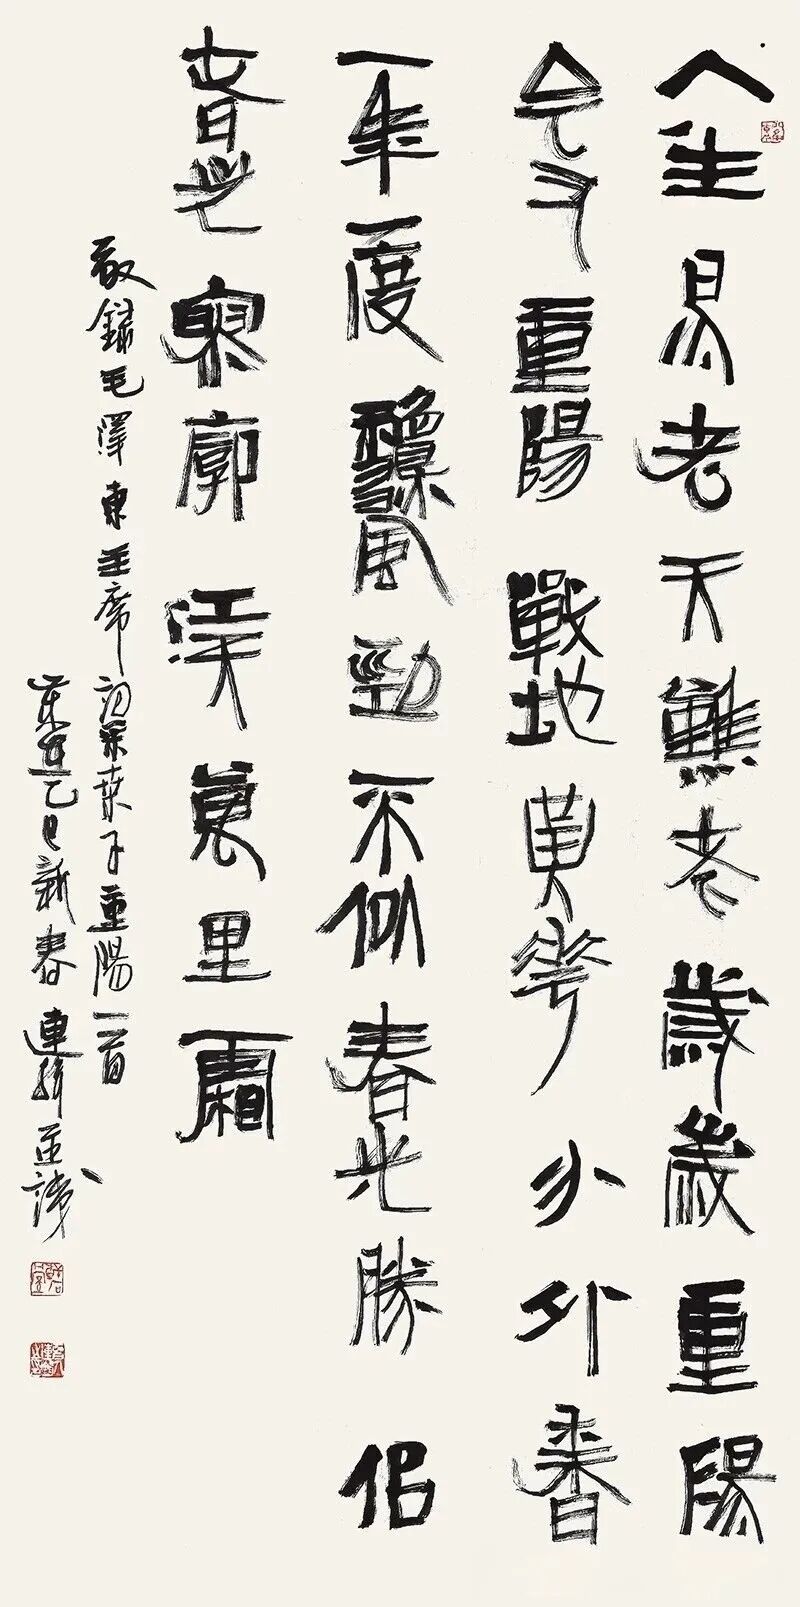 人生易老天難老歲歲重陽
今又重陽戰地黄花分外香
一年一度龝風勁不似春光勝佀
春光寥廓江天萬里霜
敬録毛澤東主席詞采桑子重陽一首
乙巳新春連輯並識